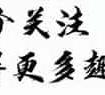 关注
更多趣